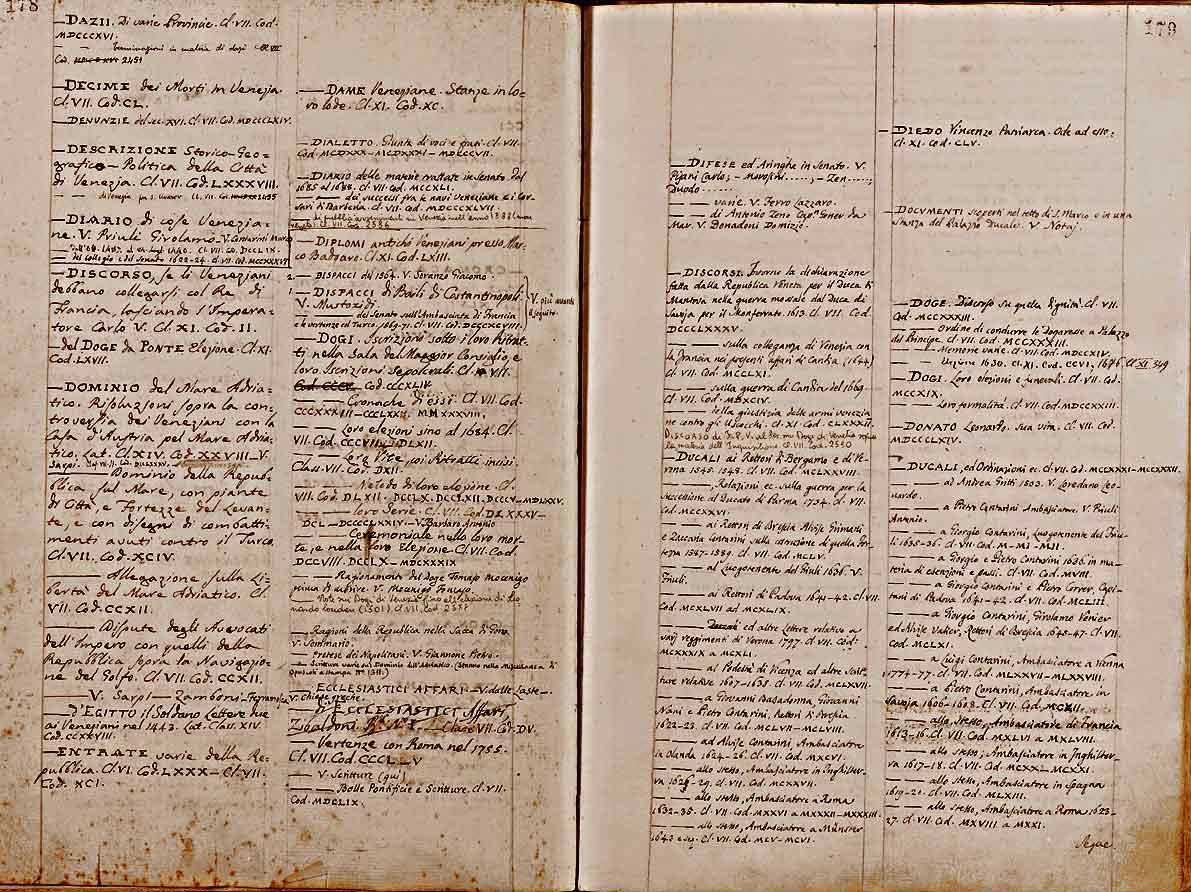 178
—DAZII. Di varie Provincie. Cl. VII. Cod.
MDCCCXVI.
— — Terminazioni in materia di dazi Cl. VII
Cod. 2451
—DECIME dei Morti in Venezia.
Cl. VII. Cod. CL.
—DENUNZIE del sec. XVI. Cl. VII. Cod. MDCCCLXIV.
—DESCRIZIONE Storico-Geo-
grafico-Politica della Città
di Venezia. Cl. VII. Cod. LXXXVIII.
—DIARIO di cose Venezia-
ne. V. Priuli Girolamo. V. Contarini Marco
— del Collegio e del Senato 1622-24. Cl. VII. Cod. MCCXXVI
—DISCORSO, se li Veneziani
debbano collegarsi col Re di
Francia, lasciando l'Impera-
tore Carlo V. Cl. XI. Cod. II.
—del DOGE da PONTE Elezione. Cl. XI.
Cod. LXVII.
—DOMINIO del Mare Adria-
tico. Risoluzioni sopra la con-
troversia dei Veneziani con la
Casa d'Austria pel Mare Adria-
tico. Lat. Cl. XIV. Cod. XXVIII—V.
Sarpi.
—— Dominio della Repub-
blica sul Mare, con piante
di Città, e Fortezze del Levan-
te, e con disegni di combatti-
menti avuti contro il Turco.
Cl. VII. Cod. XCIV.
—— Allegazione sulla Li-
bertà del Mare Adriatico. Cl.
VII. Cod. CCXII.
—— Dispute degli Avvocati
dell'Impero con quelli della
Repubblica sopra la Navigazio-
ne del Golfo. Cl. VII. Cod. CCXII.
—— V. Sarpi — Zamboni.
—D'EGITTO il Soldano Lettere sue
ai Veneziani nel 1443. Lat. Clas. XIV
Cod. CCXXVIII.
—ENTRATE varie della Re-
pubblica. Cl. VI. Cod. LXXX — Cl. VII.
Cod. XCI.
—DAME Veneziane. Stanze in lo-
ro lode. Cl. XI. Cod. XC.
—DIALETTO. Giunta di voci e frasi. Cl. VII.
Cod. MCDXXX — MCDXXXI — MDCCCVII.
—DIARIO delle materie trattate in Senato dal
1685 al 1688. Cl. VII. Cod. MCCXLI.
—— dei successi fra le navi Veneziane e i Cor-
sari di Barberia. Cl. VII. Cod. MCCXLVII.
—DIPLOMI antichi Veneziani presso Mar-
co Barbaro. Cl. XI. Cod. LXIII.
—DISPACCI del 1564. V. Soranzo Giacomo.
—DISPACCI di Baili di Costantinopoli
V. Mustoxidi.
V. più avanti
il seguito.
—— del Senato sull'Ambasciata di Francia
e vertenze col Turco. 1669-71. Cl. VII. Cod. DCCCXCVIII.
—DOGI. Iscrizioni sotto i loro Ritrat-
ti nella Sala del Maggior Consiglio, e
loro Iscrizioni Sepolcrali. Cl. VII.
Cod. CCCXLIV.
—— Cronache di essi. Cl. VII. Cod.
CCCXXXIII — CCCLXXX. MMXXXVIII.
—— Loro elezioni sino al 1684. Cl.
VII. Cod. CCCVIII. DLXII.
—— Loro Vite, coi Ritratti incisi.
Clas. VII. Cod. DXII.
—— Metodo di loro elezione. Cl.
VII. Cod. DLXII. DCCLX. DCCLXII. DCCCV—MDLXXV.
—— loro serie. Cl. VII. Cod. DLXXXV—
DCL—DCCCCLXXIV—V. Barbaro Antonio
—— Ceremoniale nella loro mor-
te, e nella loro Elezione Cl. VII. Cod.
DCCVIII. DCCLX—MDCXXXIX
—— Ragionamento del Doge Tomaso Mocenigo
prima di morire. V. Mocenigo Tomaso.
—Ragioni della Republica nella Sacca di Goro.
V. Sommario.
—— pretese dei Napolitani. V. Giannone Pietro.
—ECCLESIASTICI AFFARI—V. delle Caste—
V. Chiese greche.
—ECCLESIASTICI Affari,
Zibaldoni. Classe VII. Cod. DV.
—— Vertenze con Roma nel 1755.
Cl. VII. Cod. CCCLV
—— V. Scritture (qui)
—— Bolle Pontificie e Scritture. Cl. VII.
Cod. MDCLIX.
179
—DIFESE ed Aringhe in Senato. V.
Pisani Carlo; — Morosini.....; — Zen.....;
Duodo.......
—— varie. V. Ferro Lazzaro.
—— di Antonio Zeno Cap.º Gener. da
Mar. V. Donadoni Domizio.
—DISCORSI. Intorno la dichiarazione
fatta dalla Republica Veneta per il Duca di
Mantova nella guerra mossale dal Duca di
Savoja per il Monferrato 1613. Cl. VII. Cod.
DCCCLXXXV.
—— sulla colleganza di Venezia con
la Francia nei presenti affari di Candia (1644)
Cl. VII. Cod. MCCLXI.
—— sulla guerra di Candia del 1669.
Cl. VII. Cod. MDXCIV.
—— della giustizia delle armi veneziane
ne contro gli Uscocchi. Cl. XI. Cod. CLXXXII.
—DUCALI ai Rettori di Bergamo e di Ve-
rona 1545-1548. Cl. VII. Cod. MCLXXVIII.
——, Relazioni ec. sulla guerra per la
successione al Ducato di Parma 1734. Cl. VII.
Cod. MCCXXVI.
—— ai Rettori di Brescia Alvise Grimani
e Zaccaria Contarini sulla costruzione di quella For-
tezza 1587-1589. Cl. VII. Cod. MCLV.
—— al Luogotenente del Friuli 1636. V.
Friuli.
—— ai Rettori di Padova 1641-42. Cl. VII.
Cod. MCXLVII ad MCXLIX.
—— ed altre lettere relative a
varj reggimenti di Verona 1797. Cl. VII. Cod.
MCXXXIX a MCXLI.
—— al Podestà di Vicenza ed altre Scrit-
ture relative 1607-1635. Cl. VII. Cod. MCLXXVI.
—— a Giovanni Basadonna, Giovanni
Nani e Pietro Contarini, Rettori di Brescia
1622-23. Cl. VII. Cod. MCLVII—MCLVIII.
—— ad Alvise Contarini, Ambasciatore
in Olanda 1624-26. Cl. VII. Cod. MXCVI.
—— allo stesso, Ambasciatore in Inghilter-
ra 1626-29. Cl. VII. Cod. MCXXIV.
—— allo stesso, Ambasciatore a Roma
1632-35. Cl. VII. Cod. MXXVI a MXXXII—MXXXIII.
—— allo stesso, Ambasciatore a Münster
1643 e seg. Cl. VII. Cod. MCV—MCVI.
—DIEDO Vincenzo Patriarca. Ode ad esso.
Cl. XI. Cod. CLV.
—DOCUMENTI scoperti nel tetto di S. Marco e in una
stanza del Palazzo Ducale. V. Notaj.
—DOGE. Discorso su quella dignità. Cl. VII.
Cod. MCCXXXIII.
—— Ordine di condurre le Dogaresse a Palazzo
del Principe. Cl. VII. Cod. MCCXXXIII.
—— Memorie varie. Cl. VII. Cod. MDCCXIV.
—— Unzione 1630. Cl. XI. Cod. CCVI,
—DOGI. Loro elezioni e funerali. Cl. VII. Cod.
MCCXIX.
—— Loro formalità. Cl. VII. Cod. MDCCXXIII.
—DONATO Leonardo. Sua vita. Cl. VII. Cod.
MDCCCLXIV.
—DUCALI, ed Ordinazioni ec. Cl. VII. Cod. MCCXXXI—MCCXXXII.
—— ad Andrea Gritti 1503. V. Loredano Leo-
nardo.
—— a Pietro Contarini Ambasciatore. V. Priuli
Antonio.
—— a Giorgio Contarini, Luogotenente del Friu-
li 1635-36. Cl. VII. Cod. M—MI—MII.
—— a Giorgio e Pietro Contarini 1636. in ma-
teria di esenzioni e passi. Cl. VII. Cod. MVIII.
—— a Giorgio Contarini e Pietro Correr, Capi-
tani di Padova 1641-42. Cl. VII. Cod. MCLIII.
—— a Giorgio Contarini, Girolamo Venier
ed Alvise Valier, Rettori di Brescia 1640-47. Cl. VII.
Cod. MCLXI.
—— a Luigi Contarini, Ambasciatore a Vienna
1774-77. Cl. VII. Cod. MLXXVII—MLXXVIII.
—— a Pietro Contarini, Ambasciatore in
Savoja 1606-1608. Cl. VII. Cod. MCXII.
—— allo stesso, Ambasciatore di Francia
1613-16. Cl. VII. Cod. MXLVI a MXLVIII.
—— allo stesso, Ambasciatore in Inghilter-
ra 1617-18. Cl. VII. Cod. MCXX—MCXXI.
—— allo stesso, Ambasciatore in Spagna
1619-21. Cl. VII. Cod. MLXIII.
—— allo stesso, Ambasciatore a Roma 1623-
27. Cl. VII. Cod. MXVIII a MXXI.
Segue